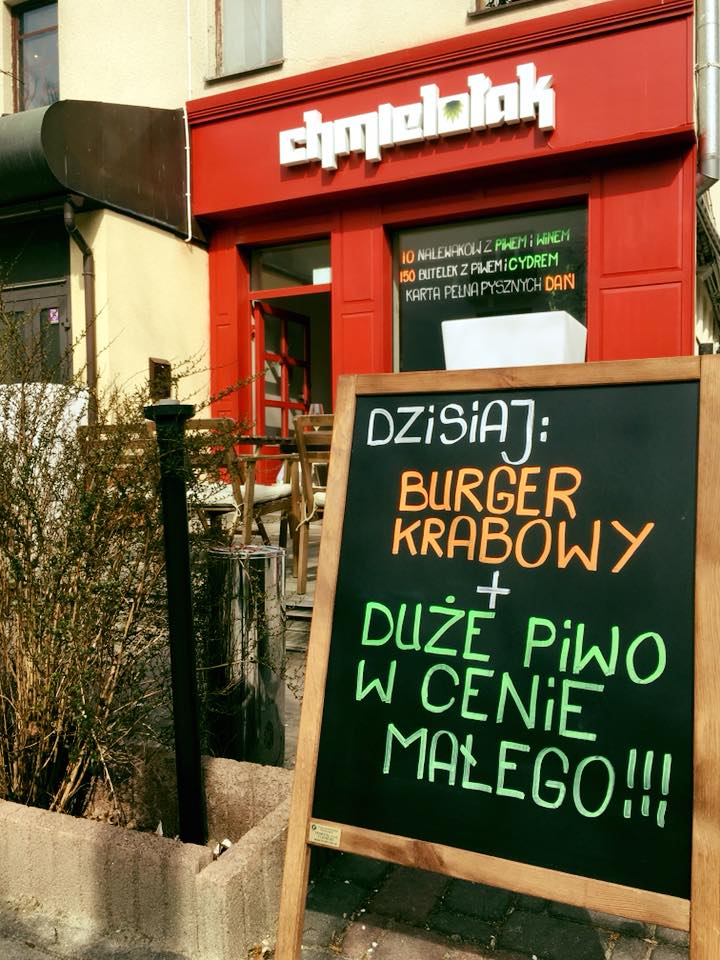 chmielołak
10 NALEWAKÓW Z PIWEM i WINEM
150 BUTELEK Z PIWEM i CYDREM
KARTA PEŁNA PYSZNYCH DAŃ
DZiSiAJ:
BURGER
KRABOWY
+
DUŻE PiWO
W CENiE
MAŁEGO!!!